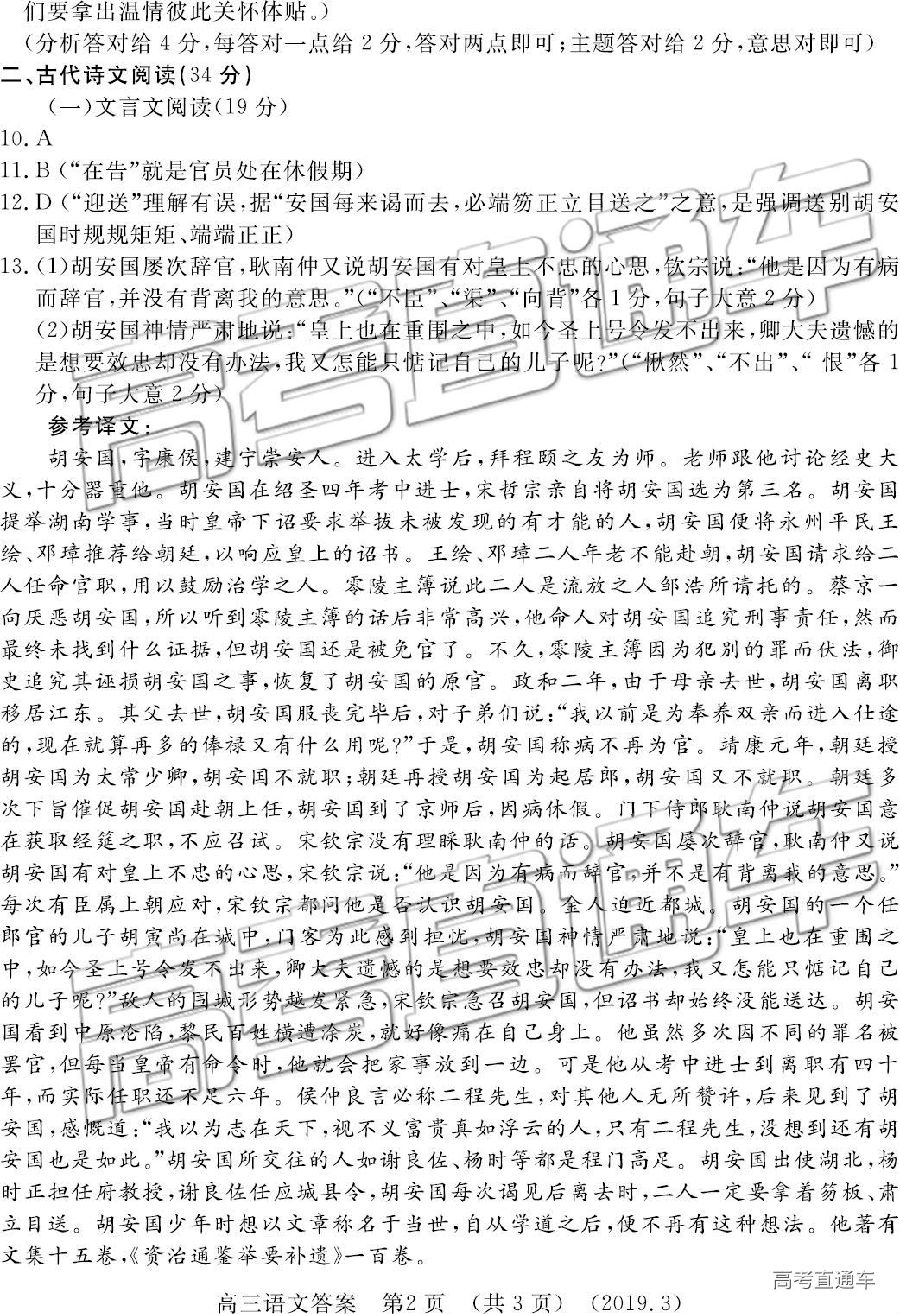 们要拿出温情彼此关怀体贴。)
(分析答对给 4 分,每答对一点给 2 分,答对两点即可;主题答对给 2 分,意思对即可)
二、古代诗文阅读(34 分)
(一)文言文阅读(19 分)
10. A
11. B (“在告”就是官员处在休假期)
12. D (“迎送”理解有误,据“安国每来谒而去,必端笏正立目送之”之意,是强调送别胡安
国时规规矩矩、端端正正)
13. (1)胡安国屡次辞官,耿南仲又说胡安国有对皇上不忠的心思,钦宗说:“他是因为有病
而辞官,并没有背离我的意思。”(“不臣”、“渠”、“向背”各 1 分,句子大意 2 分)
(2)胡安国神情严肃地说:“皇上也在重围之中,如今圣上号令发不出来,卿大夫遗憾的
是想要效忠却没有办法,我又怎能只惦记自己的儿子呢?”(“愀然”、“不出”、“ 恨”各 1
分,句子大意 2 分)
参考译文:
胡安国,字康侯,建宁崇安人。进入太学后,拜程颐之友为师。老师跟他讨论经史大
义,十分器重他。胡安国在绍圣四年考中进士,宋哲宗亲自将胡安国选为第三名。胡安国
提举湖南学事,当时皇帝下诏要求举拔未被发现的有才能的人,胡安国便将永州平民王
绘、邓璋推荐给朝廷,以响应皇上的诏书。王绘、邓璋二人年老不能赴朝,胡安国请求给二
人任命官职,用以鼓励治学之人。零陵主簿说此二人是流放之人邹浩所请托的。蔡京一
向厌恶胡安国,所以听到零陵主簿的话后非常高兴,他命人对胡安国追究刑事责任,然而
最终未找到什么证据,但胡安国还是被免官了。不久,零陵主簿因为犯别的罪而伏法,御
史追究其诬损胡安国之事,恢复了胡安国的原官。政和二年,由于母亲去世,胡安国离职
移居江东。其父去世,胡安国服丧完毕后,对子弟们说:“我以前是为奉养双亲而进入仕途
的,现在就算再多的俸禄又有什么用呢?”于是,胡安国称病不再为官。靖康元年,朝廷授
胡安国为太常少卿,胡安国不就职;朝廷再授胡安国为起居郎,胡安国又不就职。朝廷多
次下旨催促胡安国赴朝上任,胡安国到了京师后,因病休假。门下侍郎耿南仲说胡安国意
在获取经筵之职,不应召试。宋钦宗没有理睬耿南仲的话。胡安国屡次辞官,耿南仲又说
胡安国有对皇上不忠的心思,宋钦宗说:“他是因为有病而辞官,并不是有背离我的意思。”
每次有臣属上朝应对,宋钦宗都问他是否认识胡安国。金人迫近都城。胡安国的一个任
郎官的儿子胡寅尚在城中,门客为此感到担忧,胡安国神情严肃地说:“皇上也在重围之
中,如今圣上号令发不出来,卿大夫遗憾的是想要效忠却没有办法,我又怎能只惦记自己
的儿子呢?”敌人的围城形势越发紧急,宋钦宗急召胡安国,但诏书却始终没能送达。胡安
国看到中原沦陷,黎民百姓横遭涂炭,就好像痛在自己身上。他虽然多次因不同的罪名被
罢官,但每当皇帝有命令时,他就会把家事放到一边。可是他从考中进士到离职有四十
年,而实际任职还不足六年。侯仲良言必称二程先生,对其他人无所赞许,后来见到了胡
安国,感慨道:“我以为志在天下,视不义富贵真如浮云的人,只有二程先生,没想到还有胡
安国也是如此。”胡安国所交往的人如谢良佐、杨时等都是程门高足。胡安国出使湖北,杨
时正担任府教授,谢良佐任应城县令,胡安国每次谒见后离去时,二人一定要拿着笏板、肃
立目送。胡安国少年时想以文章称名于当世,自从学道之后,便不再有这种想法。他著有
文集十五卷,《资治通鉴举要补遗》一百卷。
高考直通车
高考直通车
高考直通车
高三语文答案 第2页 (共3页) (2019.3)